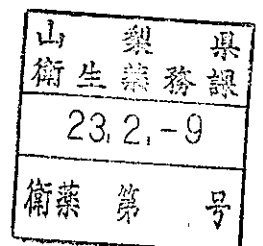 山梨県
衛生薬務課
23.2.-9
衛薬第 号